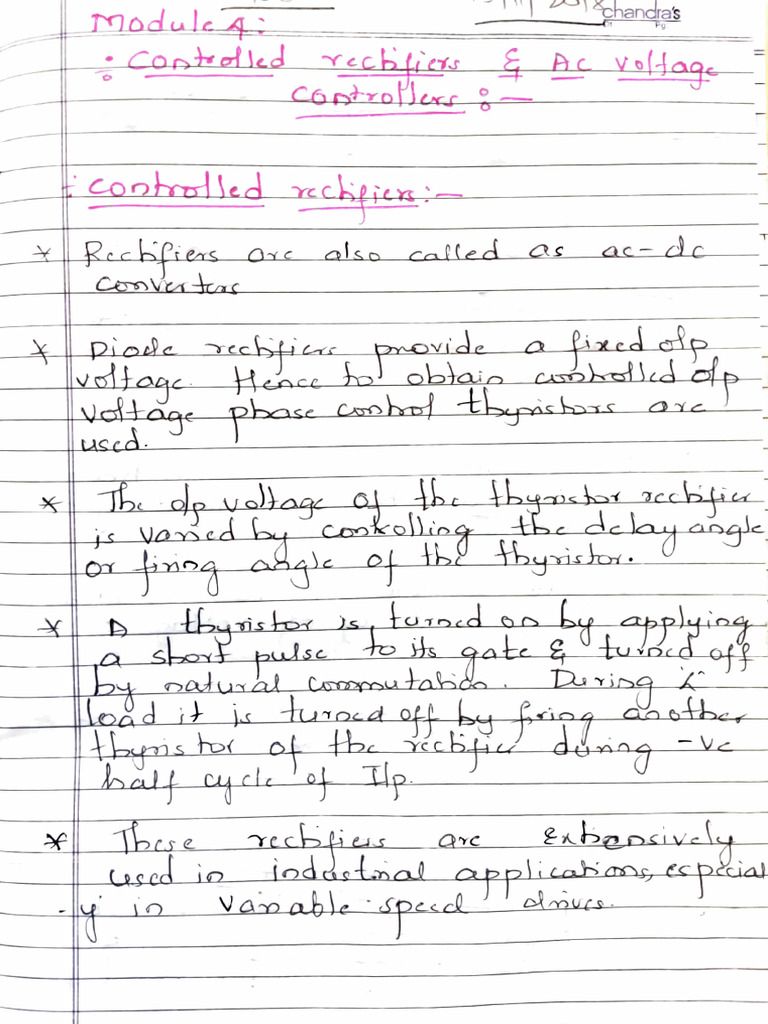 2018 chandra's
Pg
Module 4:
: Controlled rectifiers & Ac voltage
controllers :—
:- controlled rectifiers:—
* Rectifiers are also called as ac-dc
converters
* Diode rectifiers provide a fixed o/p
voltage. Hence to obtain controlled o/p
voltage phase control thyristors are
used.
* The o/p voltage of the thyristor rectifier
is varied by controlling the delay angle
or firing angle of the thyristor.
* A thyristor is turned on by applying
a short pulse to its gate & turned off
by natural commutation. During
load it is turned off by firing another
thyristor of the rectifier during -ve
half cycle of I/p.
* These rectifiers are extensively
used in industrial applications, especial
-y in variable speed drives.